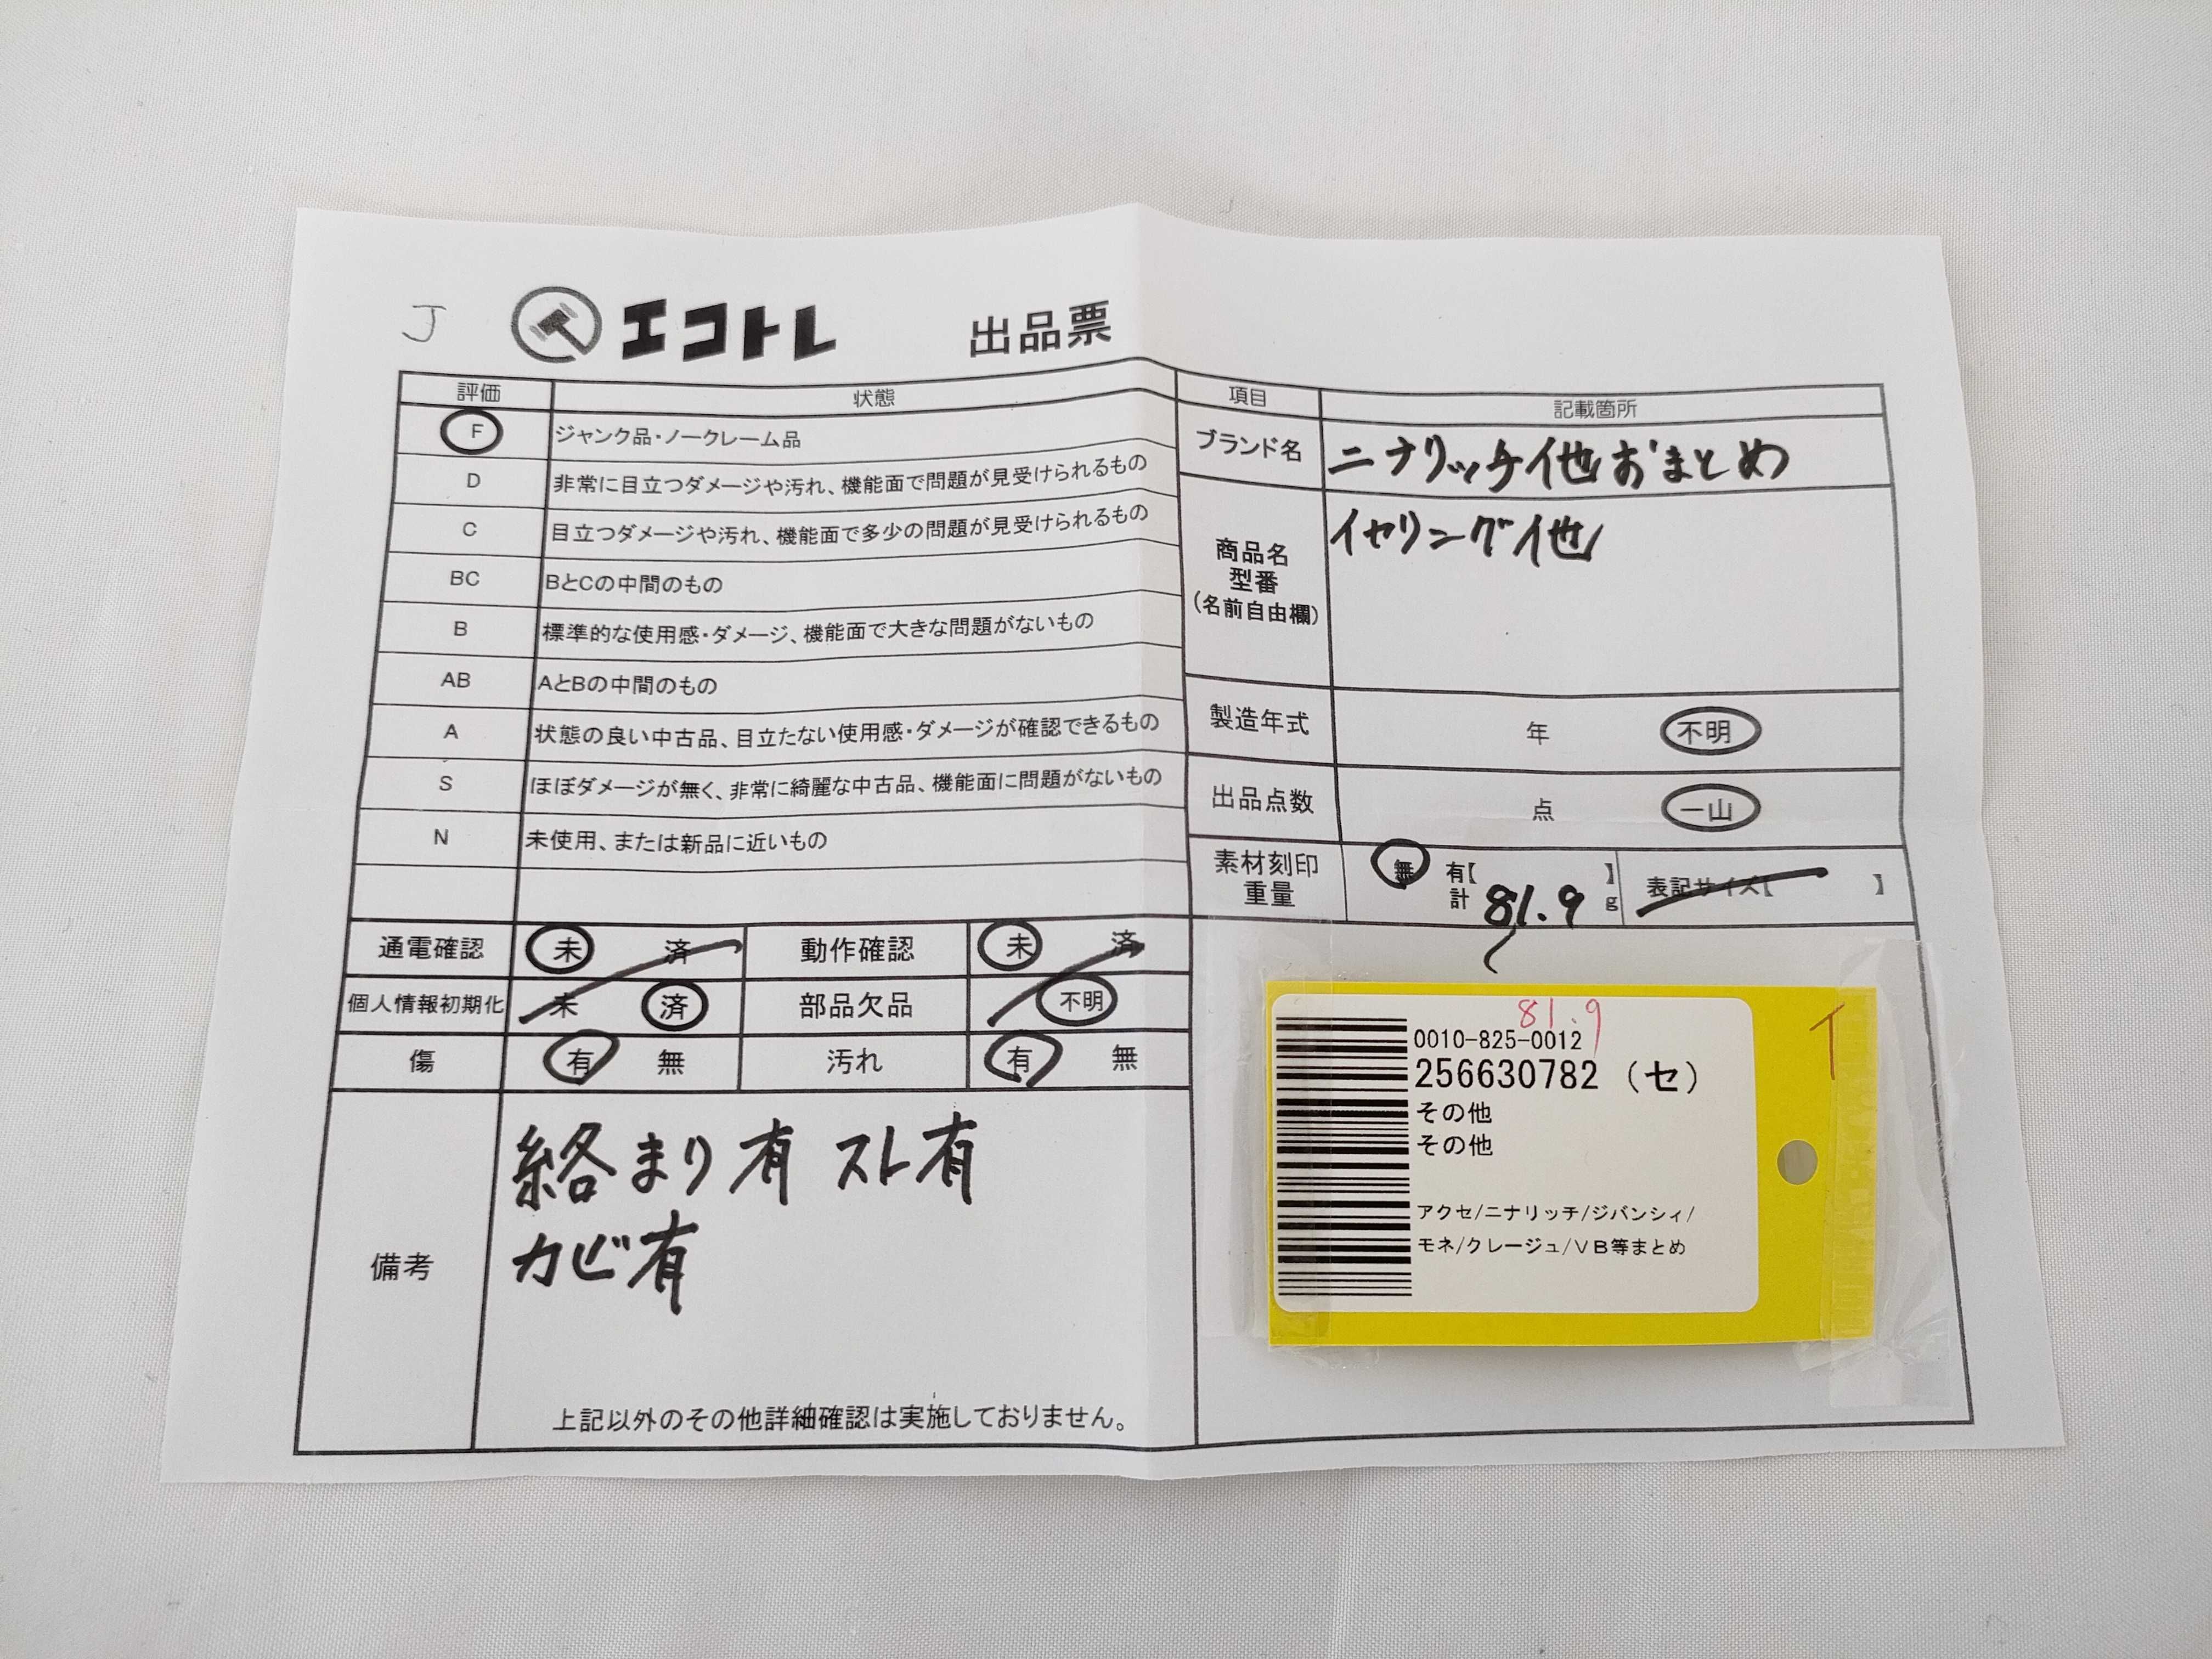 J
エコトレ 出品票
評価 状態
F ジャンク品・ノークレーム品
D 非常に目立つダメージや汚れ、機能面で問題が見受けられるもの
C 目立つダメージや汚れ、機能面で多少の問題が見受けられるもの
BC BとCの中間のもの
B 標準的な使用感・ダメージ、機能面で大きな問題がないもの
AB AとBの中間のもの
A 状態の良い中古品、目立たない使用感・ダメージが確認できるもの
S ほぼダメージが無く、非常に綺麗な中古品、機能面に問題がないもの
N 未使用、または新品に近いもの
通電確認 未 済 動作確認 未 済
個人情報初期化 未 済 部品欠品 不明
傷 有 無 汚れ 有 無
備考
絡まり有 スレ有
カビ有
上記以外のその他詳細確認は実施しておりません。
項目 記載箇所
ブランド名 ニナリッチ他おまとめ
商品名
型番
(名前自由欄)
イヤリング他
製造年式 年 不明
出品点数 点 一山
素材刻印
重量
無 有【 】
計 81.9 g
表記サイズ【 】
81.9
0010-825-0012
256630782 (セ)
その他
その他
アクセ/ニナリッチ/ジバンシィ/
モネ/クレージュ/VB等まとめ